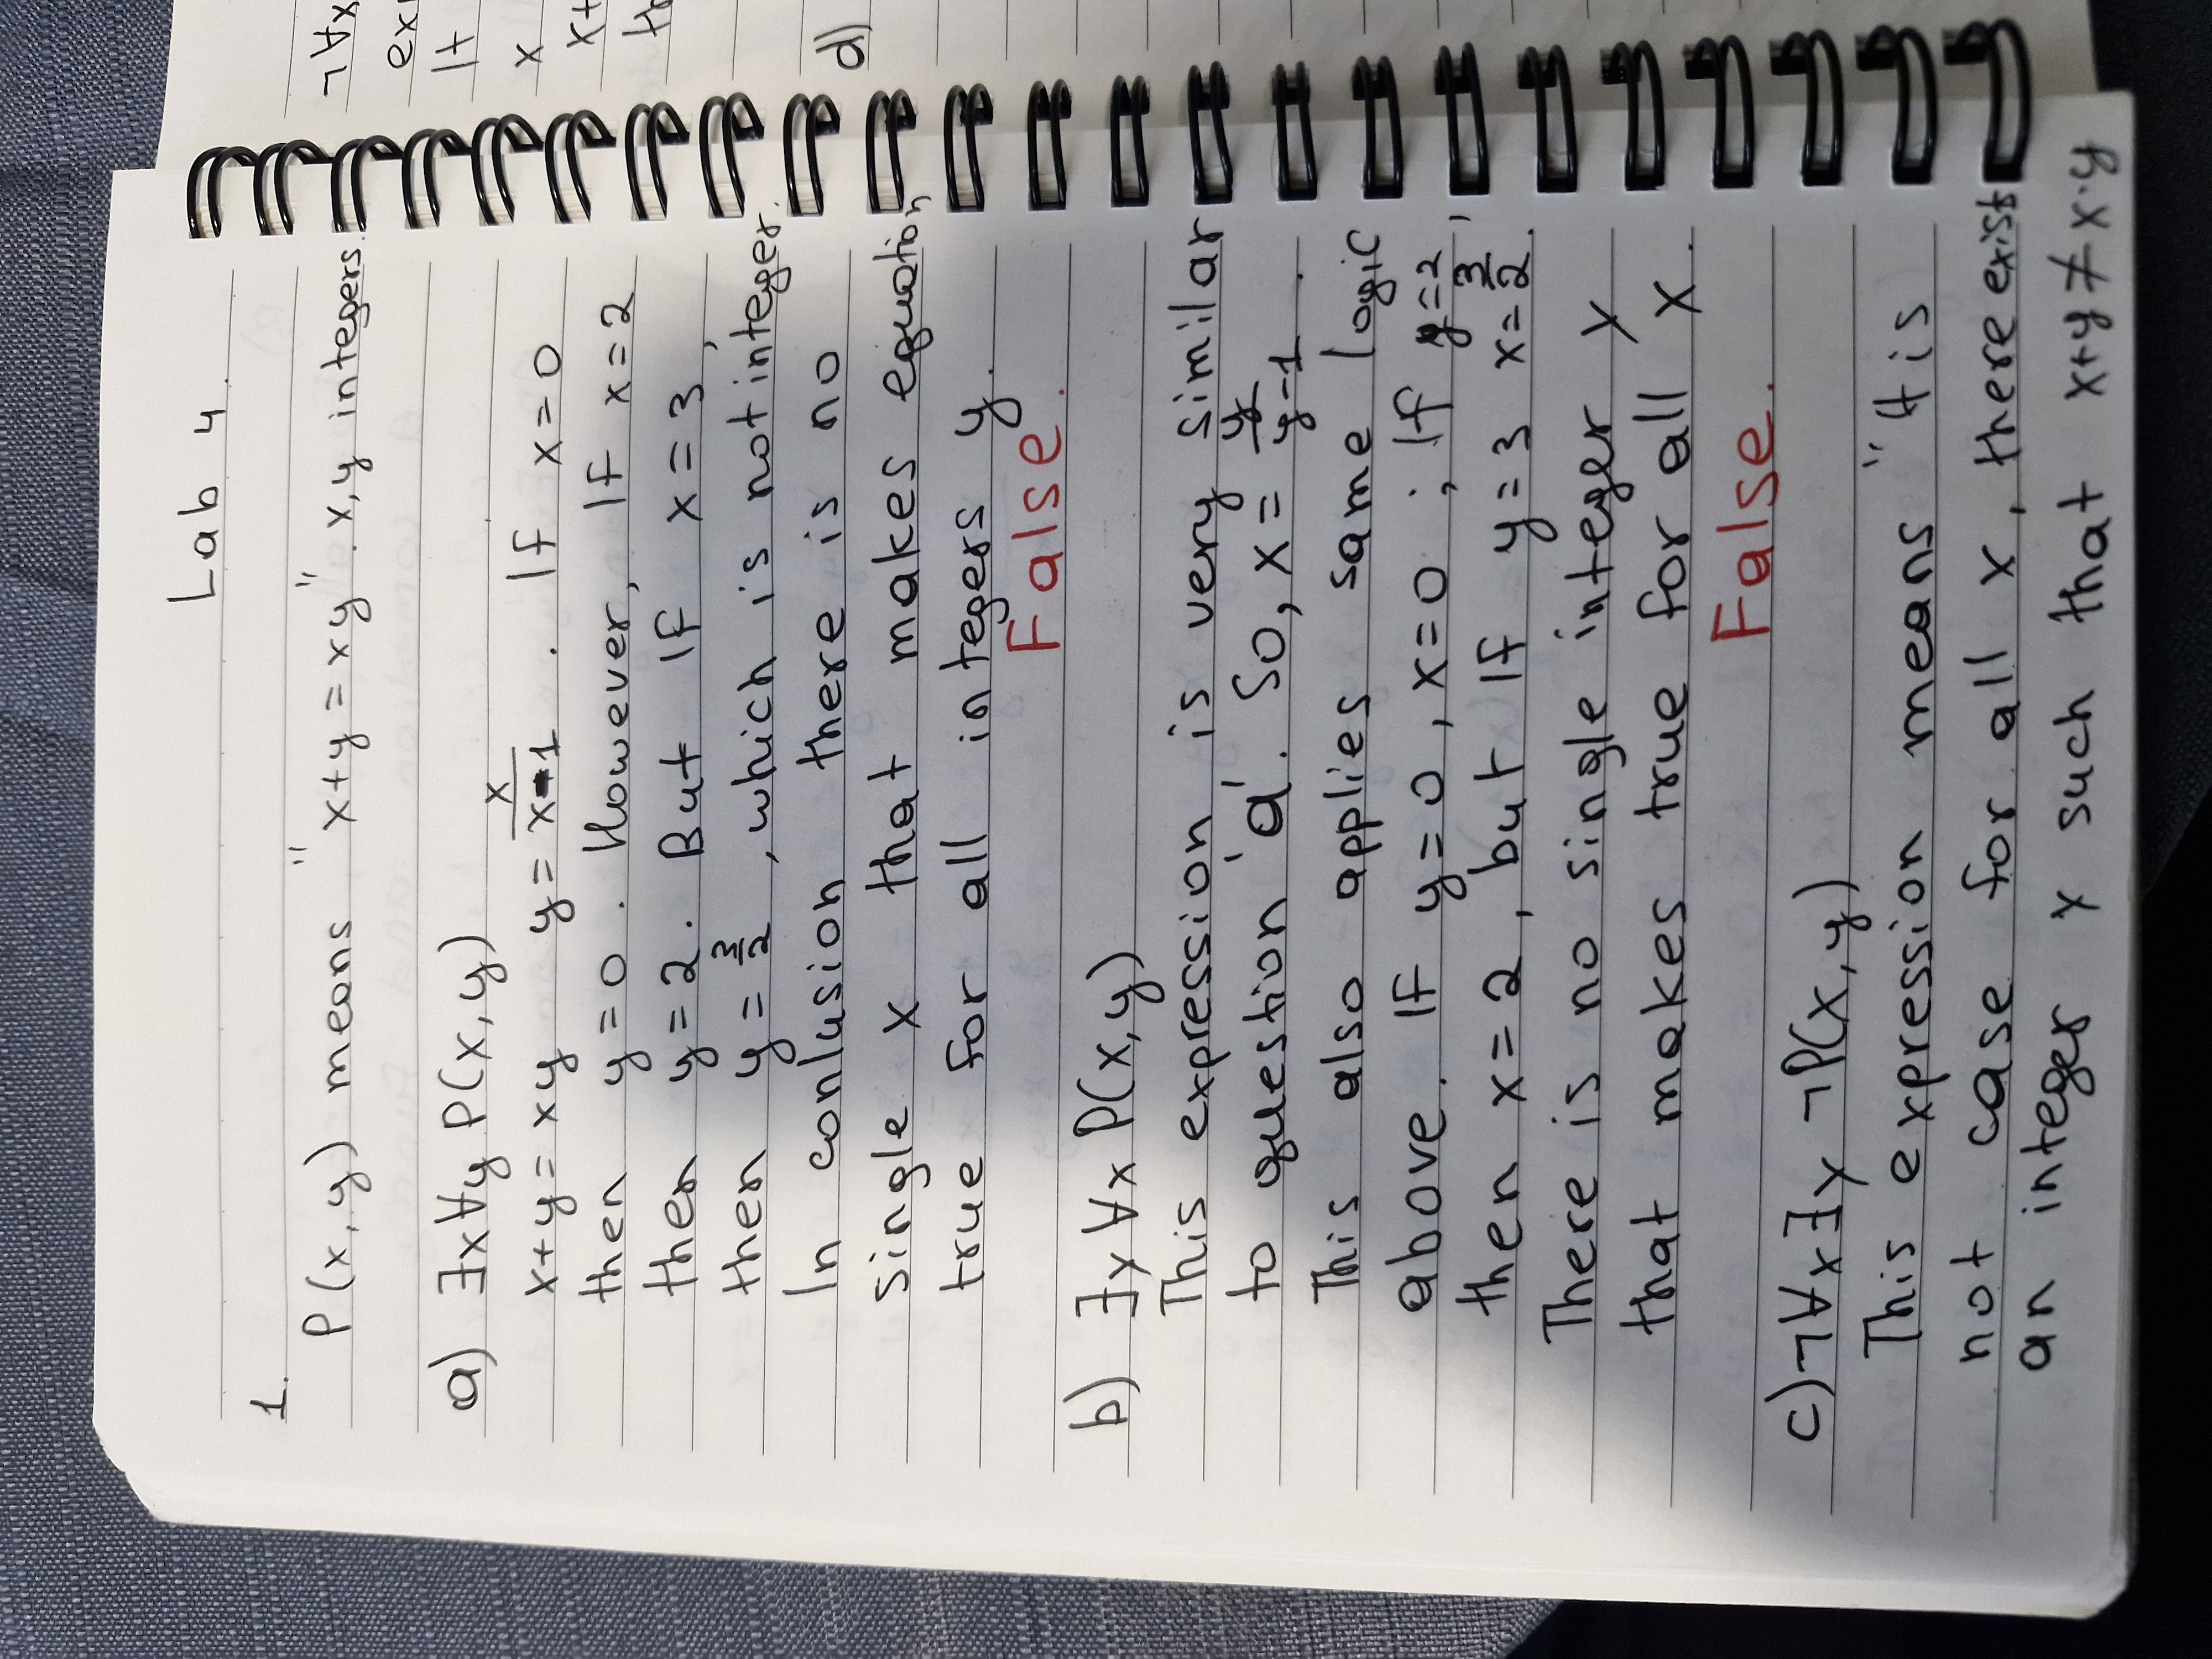 Lab 4.
1.
P(x, y) means "x+y = xy". x, y integers.
a) ∃x∀y P(x, y)
x+y = xy   y = x/x-1 . If x = 0
then y = 0. However, If x = 2
then y = 2. But If x = 3,
then y = 3/2, which is not integer.
In conlusion there is no
single x that makes equation
true for all integers y.
False.
b) ∃y ∀x P(x, y)
This expression is very similar
to question 'a'. So, x = y/y-1 .
This also applies same logic
above. If y = 0, x = 0 ; If y = 2,
then x = 2, but If y = 3 x = 3/2.
There is no single integer y
that makes true for all x.
False.
c) ¬∀x∃y ¬P(x, y)
This expression means "It is
not case for all x, there exist
an integer y such that x+y ≠ x·y
¬∀x
It
x
x+
d)